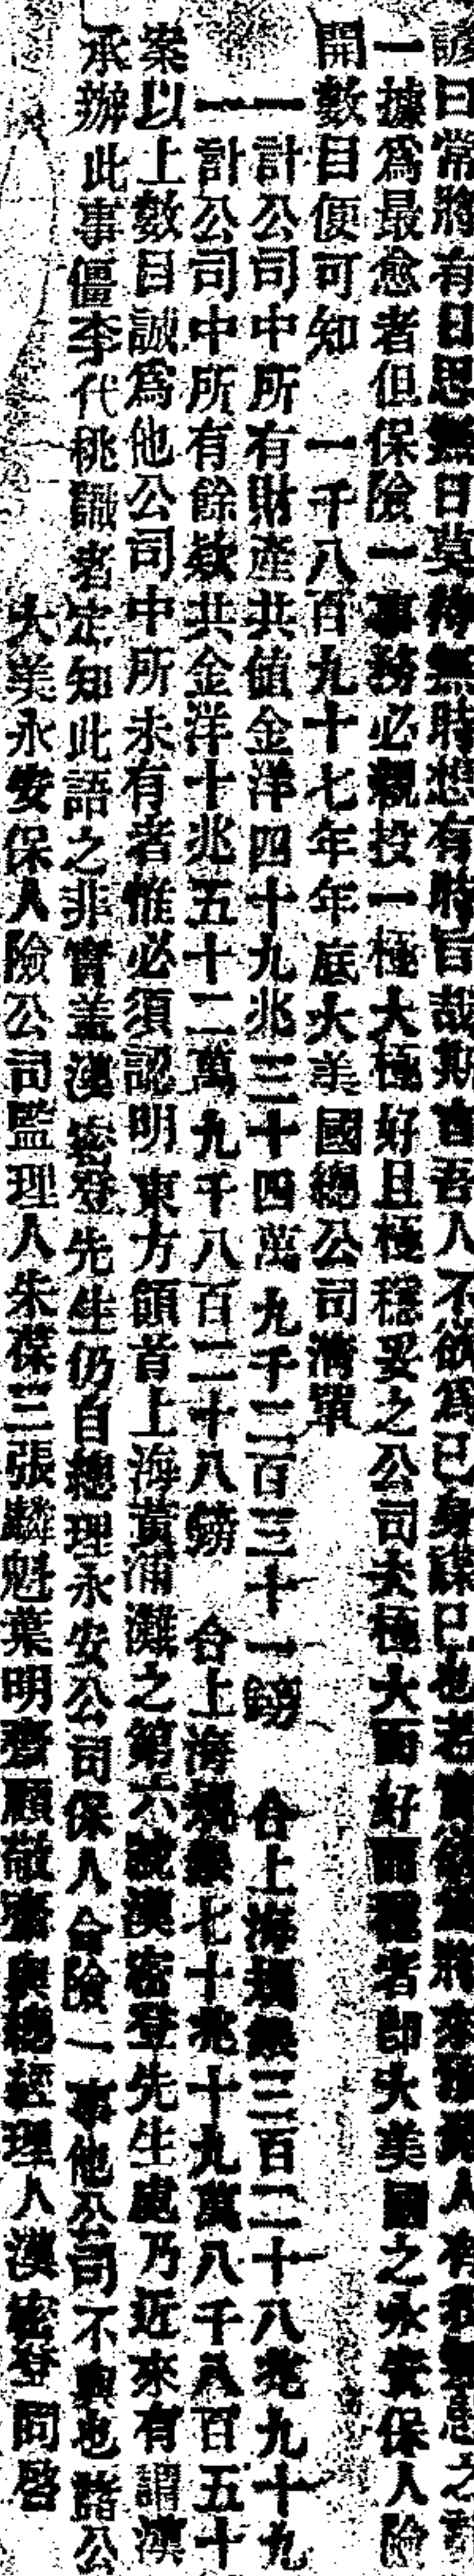 諺曰常將有日思無日莫待無時想有時旨哉斯言吾人不欲爲己身謀已也若實欲爲將來預籌人有我無患之計
一據爲最愈者但保險一事務必親投一極大極好且極穩妥之公司夫極大而好而穩者即大美國之永安保人險
開數目便可知 一千八百九十七年年底大美國總公司清單
一計公司中所有財產共値金洋四十九兆三十四萬九千二百三十一鎊 合上海規銀三百二十八兆九十九
一計公司中所有餘欵共金洋十兆五十二萬九千八百二十八鎊 合上海規銀七十兆十九萬八千八百五十
案以上數目誠爲他公司中所未有者惟必須認明東方領首上海黃浦灘之第六號漢密登先生處乃近來有謂漢
承辦此事僵李代桃識者定知此語之非實盖漢密登先生仍自總理永安公司保人合險一事他公司不與也諸公
大美永安保人險公司監理人朱葆三張麟魁葉明齋顧敬齋與總經理人漢密登同啓